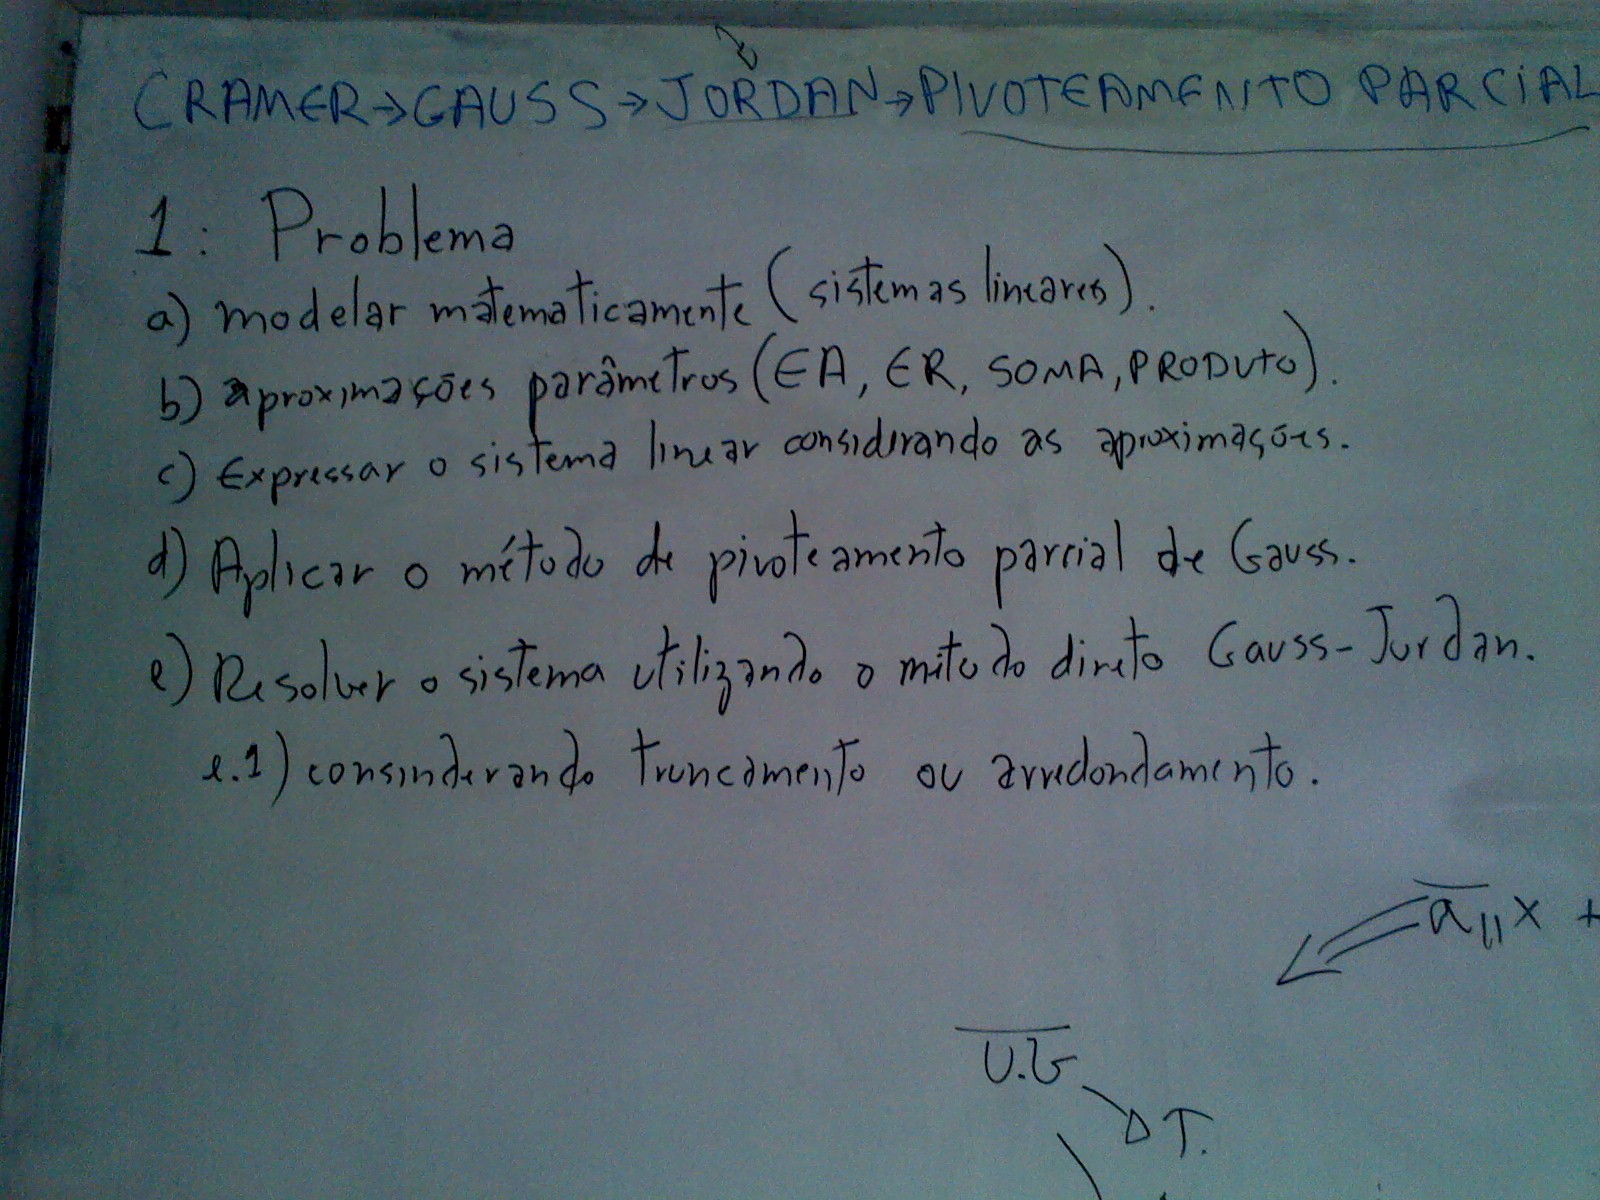 CRAMER→GAUSS→JORDAN→PIVOTEAMENTO PARCIAL
1: Problema
a) modelar matematicamente (sistemas lineares).
b) aproximações parâmetros (EA, ER, SOMA, PRODUTO).
c) Expressar o sistema linear considerando as aproximações.
d) Aplicar o método de pivoteamento parcial de Gauss.
e) Resolver o sistema utilizando o método direto Gauss-Jordan.
e.1) consinderando truncamento ou arredondamento.
a₁₁x +
T.